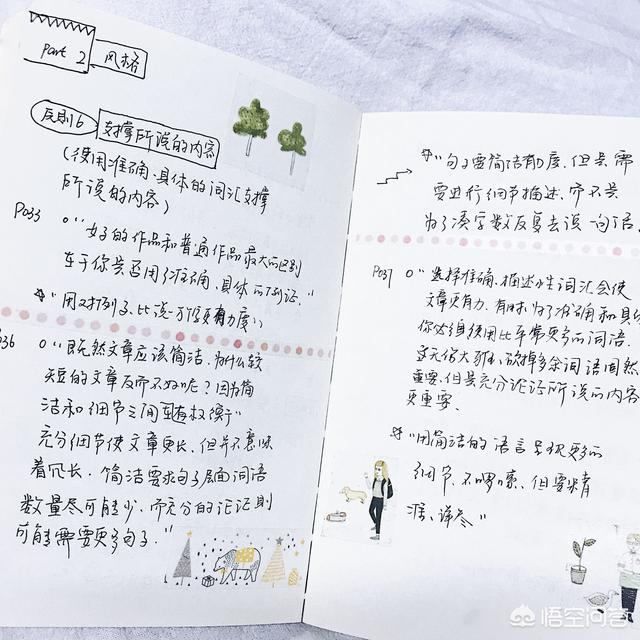 Part 2 风格
原则16 支撑所说的内容
(使用准确、具体的词汇支撑
所说的内容)
P033 “好的作品和普通作品最大的区别
在于你是否用了准确、具体的例证。”
☆“用对例子,比说一万字更有力度”
P36 “既然文章应该简洁,为什么较
短的文章反而不如呢?因为简
洁和细节之间有权衡
充分细节使文章更长,但并不意味
着冗长,简洁要求句子层面词语
数量尽可能少,而充分的论证则
可能需要更多句子。”
☆“句子要简洁有力度,但是需
要进行细节描述,而不是
为了凑字数反复去说一句话。
P037 “选择准确、描述性词汇会使
文章更有力,有时为了准确和具体
你必须使用比平常更多的词语.
这无伤大雅,砍掉多余词语固然
重要,但是充分论证所说的内容
更重要、
☆“用简洁的语言呈现更多的
细节,不啰嗦、但要精
准、详尽”
悟空问答